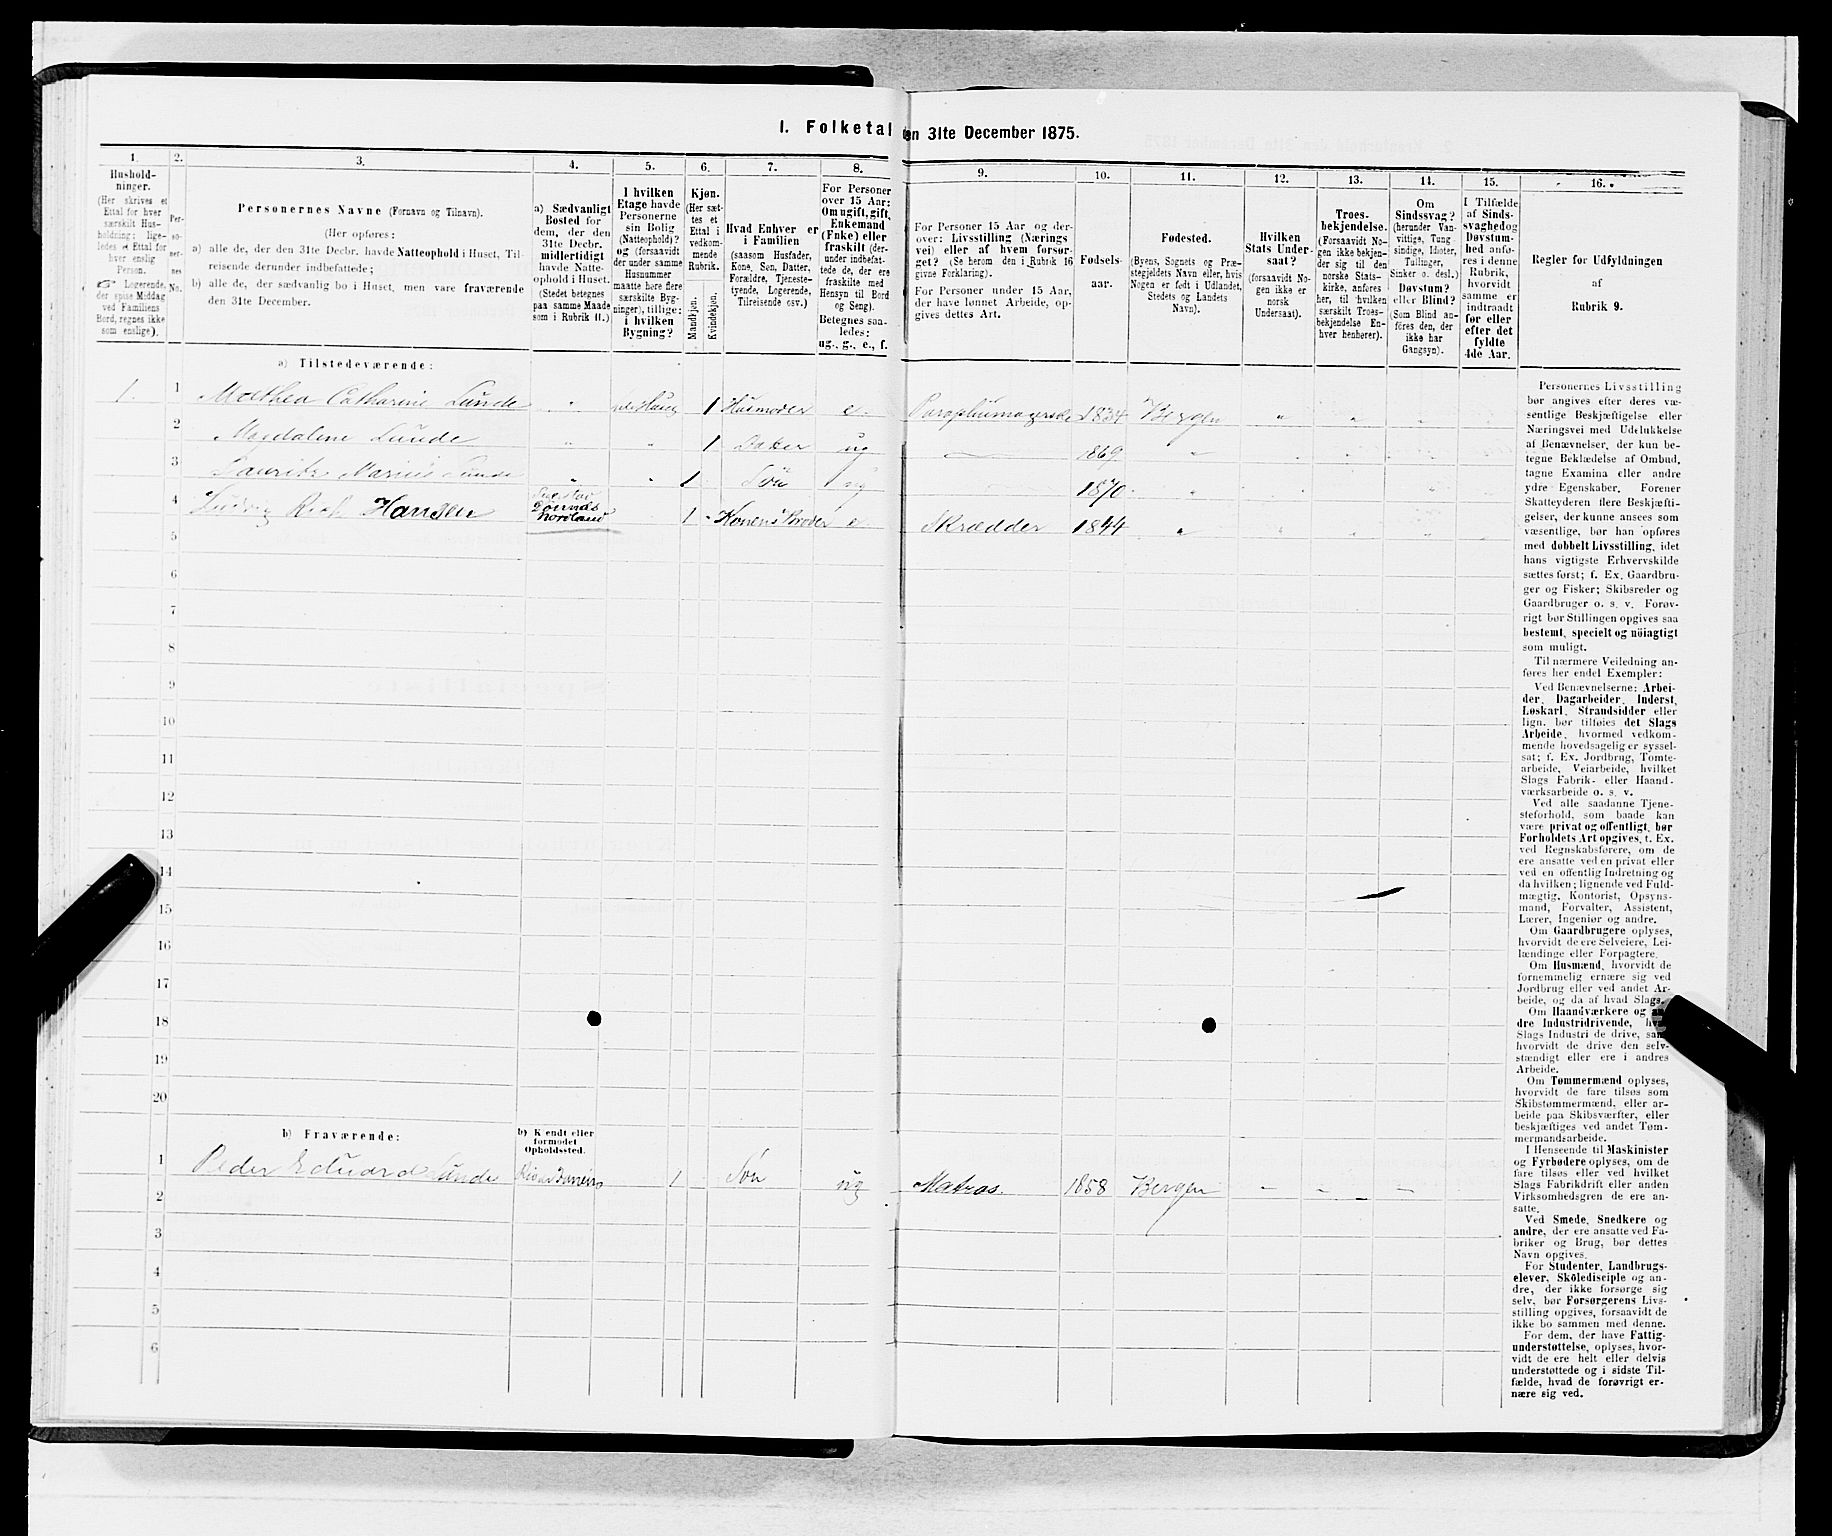 I. Folketal den 31te December 1875.
1.
Hushold-
ninger.
(Her skrives et
Ettal for hver
særskilt Hus-
holdning; lige-
ledes et Ettal for
hver enslig
Person.
☞ Logerende,
der spise Middag
ved Familiens
Bord, regnes ikke
som enslige).
2.
Per-
so-
ner-
nes
No.
3.
Personernes Navne (Fornavn og Tilnavn).
(Her opføres:
a) alle de, der den 31te Decbr. havde Natteophold i Huset, Til-
reisende derunder indbefattede;
b) alle de, der sædvanlig bo i Huset, men vare fraværende
den 31te December.
4.
a) Sædvanligt
Bosted for
dem, der den
31te Decbr.
midlertidigt
havde Natte-
ophold i Huset.
(Stedet betegnes
paa samme Maade
som i Rubrik 11.)
5.
I hvilken
Etage havde
Personerne
sin Bolig
(Natteophold)?
og (forsaavidt
der under samme
Husnummer
maatte høre flere
særskilte Byg-
ninger), tillige:
i hvilken
Bygning?
6.
Kjøn.
(Her sæt-
tes et
Ettal i
vedkom-
mende
Rubrik.
Mandkjøn.
Kvindekjøn.
7.
Hvad Enhver er
i Familien
(saasom Husfader,
Kone, Søn, Datter,
Forældre, Tjeneste-
tyende, Logerende,
Tilreisende osv.)
8.
For Personer
over 15 Aar:
Om ugift, gift,
Enkemand
(Enke) eller
fraskilt (der-
under indbefat-
tede de, der ere
fraskilte med
Hensyn til Bord
og Seng).
Betegnes saa-
ledes:
ug., g., e., f.
9.
For Personer 15 Aar og der-
over: Livsstilling (Nærings
vei) eller af hvem forsør-
get? (Se herom den i Rubrik 16
givne Forklaring).
For Personer under 15 Aar,
der have lønnet Arbeide, op-
gives dettes Art.
10.
Fødsels-
aar.
11.
Fødested.
(Byens, Sognets og Præ-
stegjeldets Navn eller, hvis
Nogen er født i Udlandet,
Stedets og Landets
Navn).
12.
Hvilken
Stats Under-
saat?
(forsaavidt No-
gen ikke er
norsk
Undersaat).
13.
Troes-
bekjendelse.
(Forsaavidt No-
gen ikke bekjen-
der sig til den
norske Stats-
kirke, anføres
her, til hvilken
særskilt Troes-
bekjendelse En-
hver henhører).
14.
Om
Sindssvag?
(herunder Van-
vittige, Tung
sindige, Idioter,
Tullinger,
Sinker o. desl.)
Døvstum?
eller Blind?
(Som Blind an-
føres den, der
ikke har
Gangsyn).
15.
I Tilfælde
af Sinds-
svaghed og
Døvstum-
hed anfø-
res i denne
Rubrik,
hvorvidt
samme er
indtraadt
før eller
efter det
fyldte
4de Aar.
16.
Regler for Udfyldningen
af
Rubrik 9.
a) Tilstedeværende:
1. 1 Molthea Catharine Lunde " 1 Husmoder e. 1834 Bergen " " " "
2 Magdalene Lunde " " 1 Datter ug 1869 "
3 Lauritz Marius Lunde " " 1 Søn ug 1870 " "
4 Ludvig Hansen Nordland 1 Konens Broder e. Skrædder 1844 " " " " "
5
6
7
8
9
10
11
12
13
14
15
16
17
18
19
20
b) Fraværende:
b) Kjendt eller
formodet
Opholdssted.
1 Peder Eduard Lunde 1 Søn ug Matros. 1858 Bergen – – –
2
3
4
5
6
Personernes Livsstilling
bør angives efter deres væ-
sentlige Beskjæftigelse eller
Næringsvei med Udelukkelse
af Benævnelser, der kun be-
tegne Beklædelse af Ombud,
tagne Examina eller andre
ydre Egenskaber. Forener
Skatteyderen flere Beskjæfti-
gelser, der kunne ansees som
væsentlige, bør han opføres
med dobbelt Livsstilling, idet
hans vigtigste Erhvervskilde
sættes først; f. Ex. Gaardbru-
ger og Fisker; Skibsreder og
Gaardbruger o. s. v. Forøv-
rigt bør Stillingen opgives saa
bestemt, specielt og nöiagtigt
som muligt.
Til nærmere Veiledning an-
føres her endel Exempler:
Ved Benævnelserne: Arbei-
der, Dagarbeider, Inderst,
Løskarl, Strandsidder eller
lign. bør tilføies det Slags
Arbeide, hvormed vedkom-
mende hovedsagelig er syssel-
sat; f. Ex. Jordbrug, Tomte-
arbeide, Veiarbeide, hvilket
Slags Fabrik- eller Haand-
værksarbeide o. s. v.
Ved alle saadanne Tjene-
steforhold, som baade kan
være privat og offentligt, bør
Forholdets Art opgives, t. Ex.
ved Regnskabsførere, om de
ere ansatte ved en privat eller
ved en offentlig Indretning og
da hvilken; lignende ved Fuld-
mægtig, Kontorist, Opsyns-
mand, Forvalter, Assistent,
Lærer, Ingeniør og andre.
Om Gaardbrugere oplyses,
hvorvidt de ere Selveiere, Lei-
lændinge eller Forpagtere.
Om Husmænd, hvorvidt de
fornemmelig ernære sig ved
Jordbrug eller ved andet Ar-
beide, og da af hvad Slags.
Om Haandværkere og an-
dre Industridrivende,
Slags Industri de drive, samt
hvorvidt de drive den selv-
stændigt eller ere i andres
Arbeide.
Om Tømmermænd oplyses,
hvorvidt de fare tilsøs som
Skibstømmermænd, eller ar-
beide paa Skibsværfter, eller
beskjæftiges ved andet Tøm-
mermandsarbeide.
I Henseende til Maskinister
og Fyrbødere oplyses, om de
fare tilsøs eller ved hvilket
Slags Fabrikdrift eller anden
Virksomhedsgren de ere an-
satte.
Ved Smede, Snedkere og
andre, der ere ansatte ved Fa-
briker og Brug, bør dettes
Navn opgives.
For Studenter, Landbrugs-
elever, Skoledisciple og an-
dre, der ikke forsørge sig
selv, bør Forsørgerens Livs-
stilling opgives, forsaavidt de
ikke bo sammen med denne.
For dem, der have Fattig-
understøttelse, oplyses, hvor-
vidt de ere helt eller delvis
understøttede og i sidste Til-
fælde, hvad de forøvrigt er-
nære sig ved.